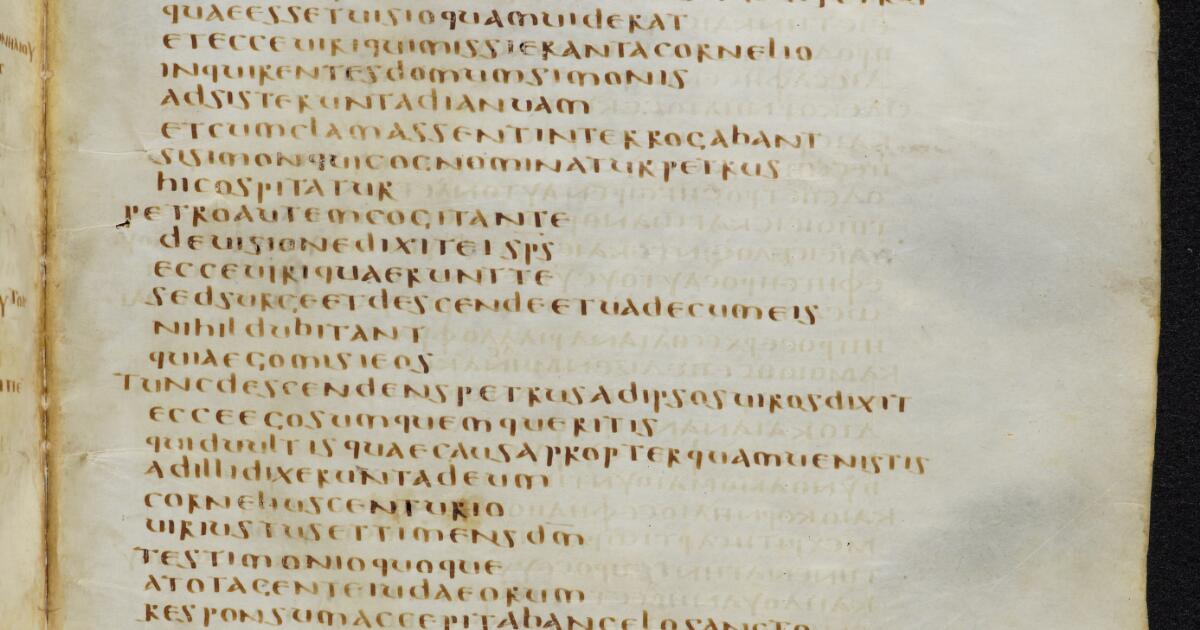 QUAEESSETUISIOQUAMUIDERAT
ETECCEUIRIQUIMISSIERANTACORNELIO
INQUIRENTESDOMUMSIMONIS
ADSISTERUNTADIANUAM
ETCUMCLAMASSENTINTERROGABANT
SISIMONQUICOGNOMINATURPETRUS
HICOSPITATUR
PETROAUTEMCOGITANTE
DEUISIONEDIXITEISP̄S
ECCEUIRIQUAERUNTTE
SEDSURGEETDESCENDEETUADECUMEIS
NIHILDUBITANT
QUIAEGOMISIEOS
TUNCDESCENDENSPETRUSADIPSOSUIROSDIXIT
ECCEEGOSUMQUEMQUERITIS
QUIDUULTISQUAECAUSAPROPTERQUAMUENISTIS
ADILLIDIXERUNTADEUM
CORNELIUSCENTURIO
UIRIUSTUSETTIMENSDM̄
TESTIMONIOQUOQUE
ATOTAGENTEIUDAEORUM
RESPONSUMACCEPITABANGELOSANCTO